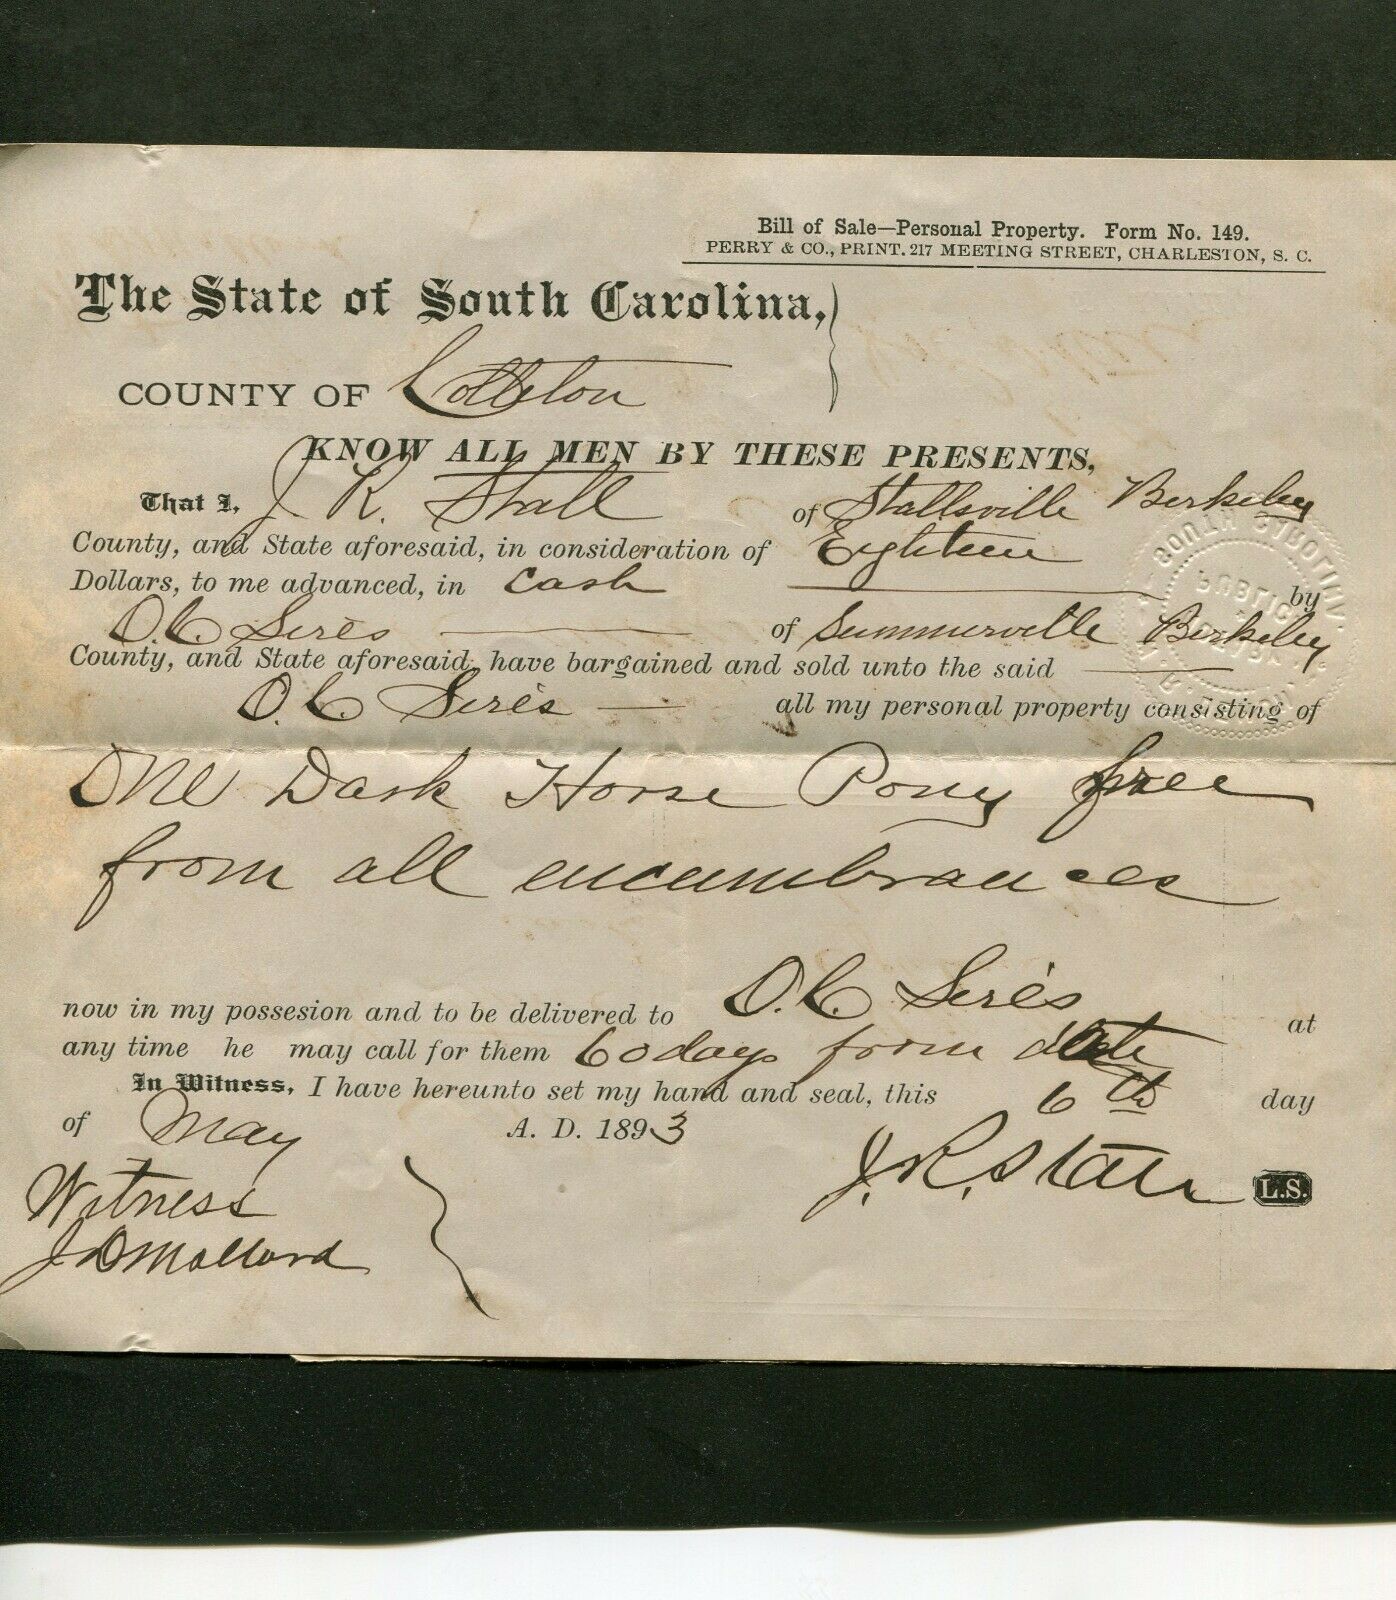 Bill of Sale—Personal Property. Form No. 149.
PERRY & CO., PRINT. 217 MEETING STREET, CHARLESTON, S. C.
The State of South Carolina,
COUNTY OF Colleton
KNOW ALL MEN BY THESE PRESENTS,
That I, J R. Stall of Stallsville Berkeley
County, and State aforesaid, in consideration of Eighteen
Dollars, to me advanced, in cash by
O. C. Serés of Summerville Berkeley
County, and State aforesaid, have bargained and sold unto the said
O. C. Serés all my personal property consisting of
One Dark Horse Pony free
from all encumbrances
now in my possesion and to be delivered to O. C. Serés at
any time he may call for them 60 days from date
In Witness, I have hereunto set my hand and seal, this 6th day
of May A. D. 1893
J. R. Stall L.S.
Witness
J D Mallard
SOUTH CAROLINA
PUBLIC